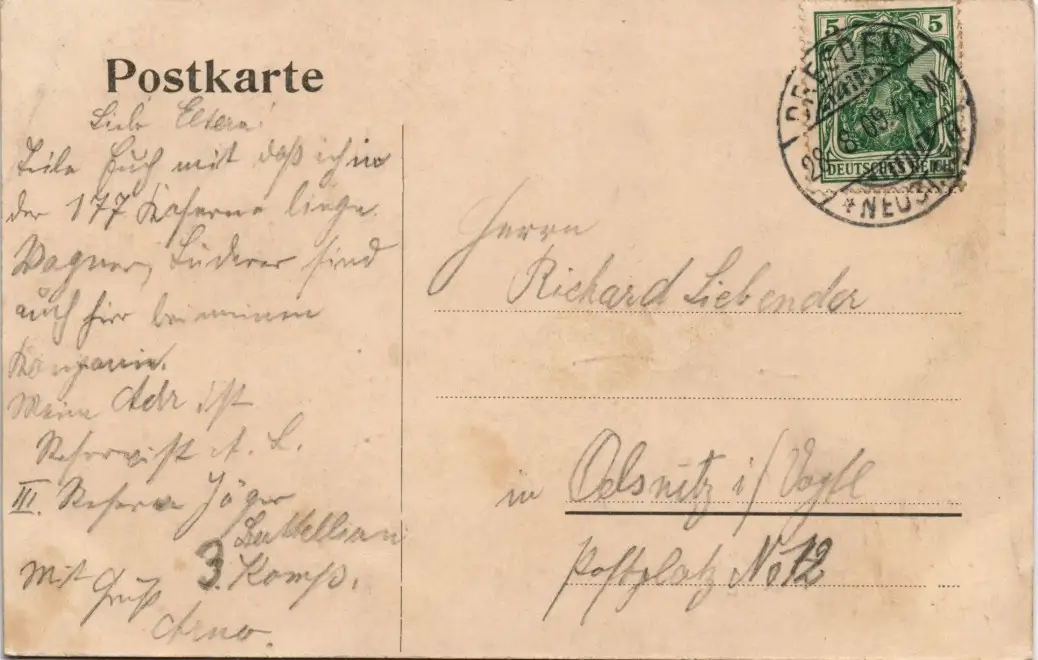 Postkarte
Liebe Eltern!
Teile Euch mit daß ich in
der 177 Kaserne liege.
Wagner, Luderer sind
auch hier bei meinen
Kompanie.
Meine Adr ist
Reservist A. L.
III. Reserve Jäger
Battellion
3. Komp.
Mit Gruß
Arno.
5 5
DEUTSCHES REICH
DRESDEN
28. 8. 09. 4-5 N
* NEUST.
Herrn
Richard Liebender
in Oelsnitz i/Vogtl
Postplatz No 12